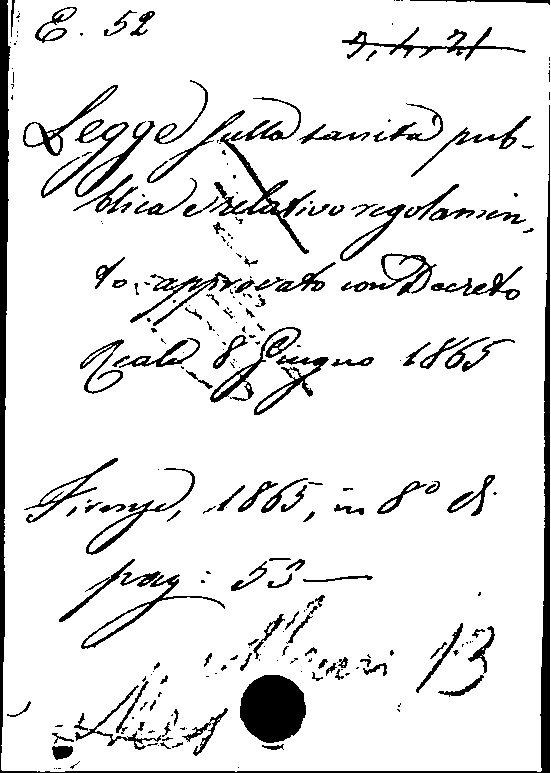 E. 52
5, 4, 21
Legge sulla sanità pub-
blica e relativo regolamen,
to approvato con Decreto
Reale 8 Giugno 1865
Firenze, 1865, in 8º di
pag: 53—
13